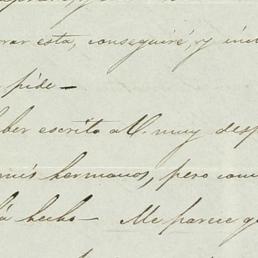 rar esta, conseguiré, y
pide —
ber escrito a V. muy desp
mis hermanos, pero com
á hecho — Me parece q